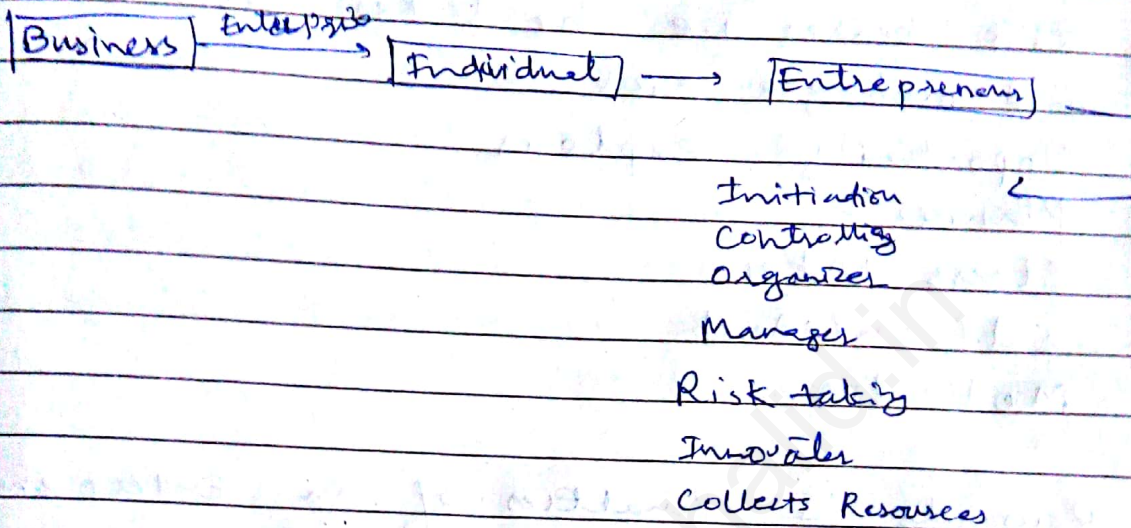 Business Enterprise
Individual → Entrepreneur
Initiation
Controlling
Organizes
Manages
Risk taking
Innovates
Collects Resources